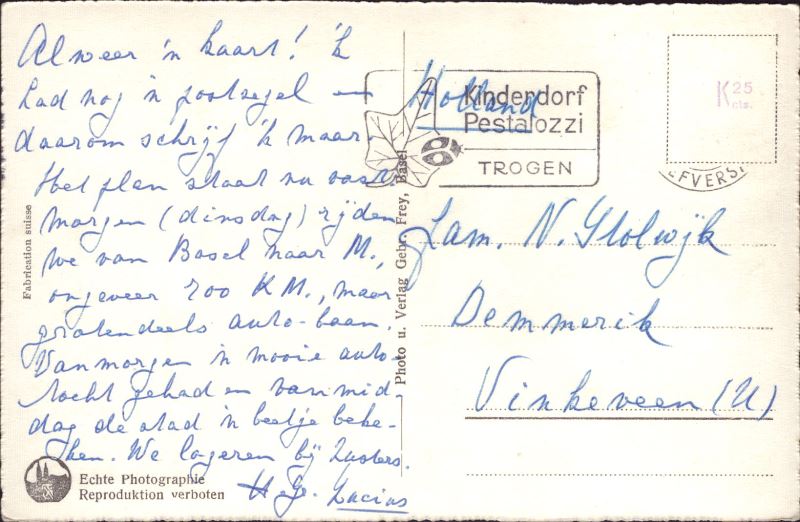 Alweer 'n kaart! 'k
had nog 'n postzegel —
daarom schrijf 'k maar.
Het plan staat nu vast.
morgen (dinsdag) rijden
we van Basel naar M.,
ongeveer 700 KM., maar
grotendeels auto-baan.
Vanmorgen 'n mooie auto-
tocht gehad en vanmid-
dag de stad 'n beetje beke-
ken. We logeren bij zusters.
H. Gr. Lucius
Echte Photographie
Reproduktion verboten
Fabrication suisse
Photo u. Verlag Gebr. Frey, Basel
Kinderdorf
Pestalozzi
TROGEN
K 25
cts.
Holland
Fam. N. Stolwijk
Demmerik
Vinkeveen (U)